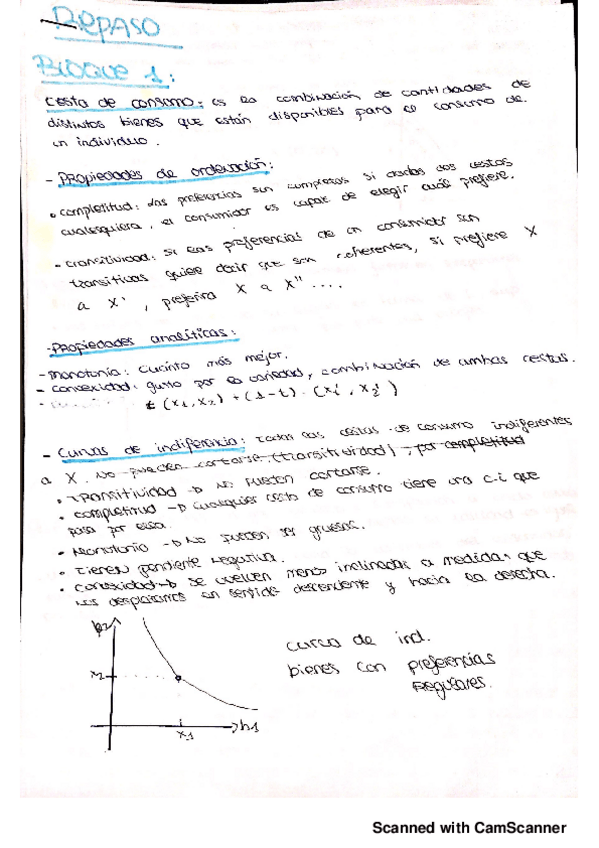 Repaso
Bloque 1:
Cesta de consumo: es la combinación de cantidades de
distintos bienes que están disponibles para el consumo de
un individuo.
- Propiedades de ordenación:
• completitud: las preferencias son completas si dadas dos cestas
cualesquiera, el consumidor es capaz de elegir cuál prefiere.
- transitividad: si las preferencias de un consumidor son
transitivas quiere decir que son coherentes, si prefiere X
a X', preferirá X a X''....
- Propiedades analíticas:
- Monotonía: Cuanto más mejor.
- convexidad: gusto por la variedad, combinación de ambas cestas.
t (x1, x2) + (1-t) · (x1', x2')
- Curvas de indiferencia: Todas las cestas de consumo indiferentes
a X. No pueden cortarse (transitividad), por completitud
• Transitividad → No pueden cortarse.
• completitud → Cualquier cesta de consumo tiene una c.i que
pasa por ella.
• Monotonía → No pueden ser gruesas.
• Tienen pendiente negativa.
• convexidad → se vuelven menos inclinadas a medida que
nos desplazamos en sentido descendente y hacia la derecha.
b2
x2
x1
b1
curva de ind.
bienes con preferencias
Regulares.
Scanned with CamScanner